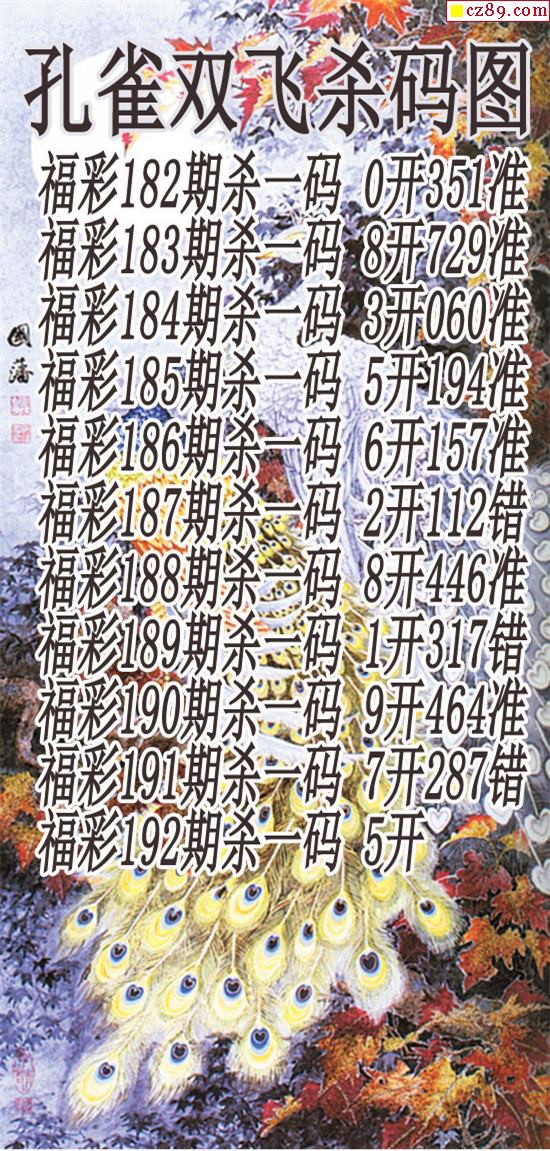 cz89.com
孔雀双飞杀码图
福彩182期杀一码 0开351准
福彩183期杀一码 8开729准
福彩184期杀一码 3开060准
福彩185期杀一码 5开194准
福彩186期杀一码 6开157准
福彩187期杀一码 2开112错
福彩188期杀一码 8开446准
福彩189期杀一码 1开317错
福彩190期杀一码 9开464准
福彩191期杀一码 7开287错
福彩192期杀一码 5开
國藩